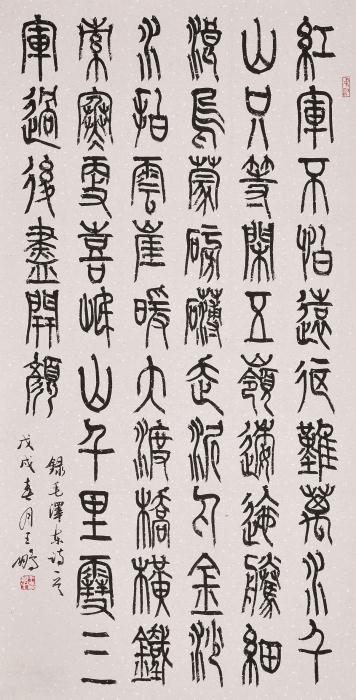 紅軍不怕遠征難萬水千
山只等閑五嶺逶迤騰細
浪烏蒙磅礴走泥丸金沙
水拍雲崖暖大渡橋橫鐵
索寒更喜岷山千里雪三
軍過後盡開顏
録毛澤东诗一首
戊戌春月王鵬